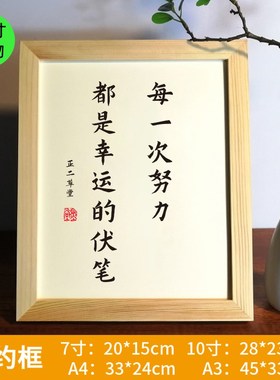 每一次努力
都是幸运的伏笔
正二草堂
约框
7寸：20*15cm 10寸：28*23
A4：33*24cm A3：45*3